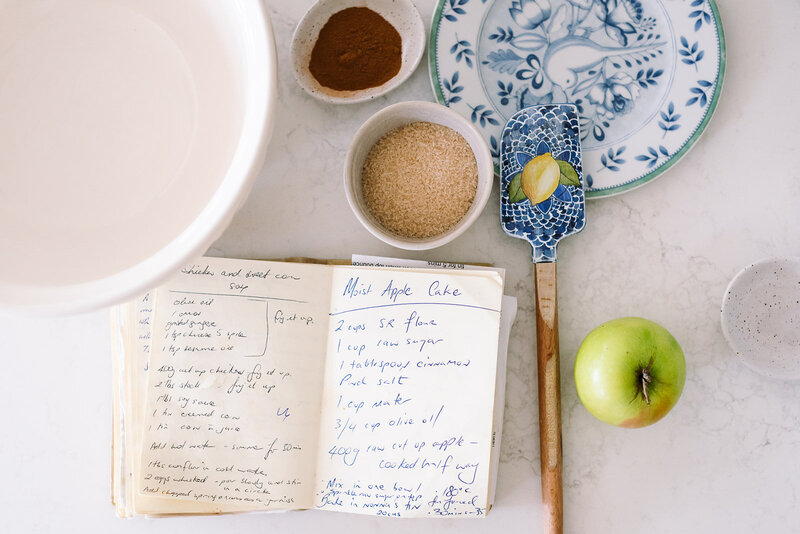 Chicken and sweet corn
soup
olive oil
1 onion
grated ginger
1 tsp chinese 5 spice
1 tsp sesame oil
fry it up.
400g cut up chicken fry it up.
2 lbs stock - fry it up
1 tbs soy sauce
1 tin creamed corn
1 tin corn in juice
Add hot water - simmer for 50 min
1 tbs cornflour in cold water
2 eggs whisked - pour slowly and stir
in a circle
Add chopped spring onions as a garnish
Moist Apple Cake
2 cups SR flour
1 cup raw sugar
1 tablespoon cinnamon
Pinch salt
1 cup water
3/4 cup olive oil
400g raw cut up apple -
cooked half way
Mix in one bowl
Sprinkle raw sugar on top
Bake in nonna's tin
20cms
180°c
fan forced
30mins - 35